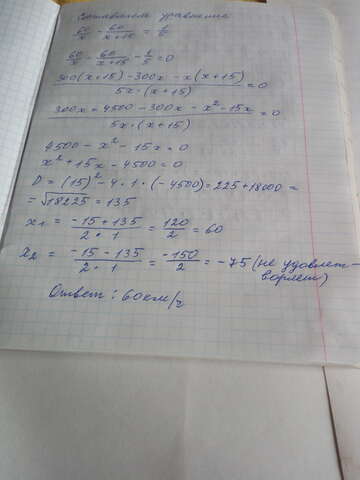 Составляем уравнение
60/x - 60/(x+15) = 1/5
60/x - 60/(x+15) - 1/5 = 0
(300(x+15) - 300x - x(x+15))/(5x·(x+15)) = 0
(300x + 4500 - 300x - x² - 15x)/(5x·(x+15)) = 0
4500 - x² - 15x = 0
x² + 15x - 4500 = 0
D = (15)² - 4·1·(-4500) = 225 + 18000 =
= √18225 = 135
x₁ = (-15+135)/(2·1) = 120/2 = 60
x₂ = (-15-135)/(2·1) = -150/2 = -75 (не удовлет-
воряет)
Ответ: 60км/ч